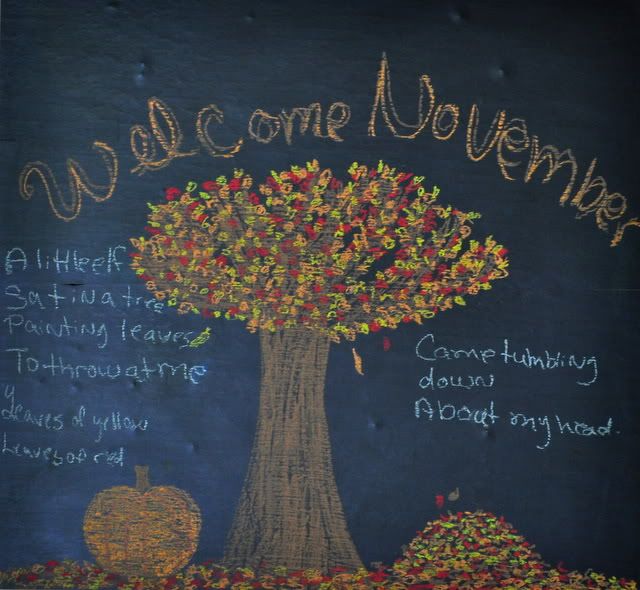 Welcome November
A little elf
Sat in a tree
Painting leaves
To throw at me
y
Leaves of yellow
Leaves of red
Came tumbling
down
About my head.